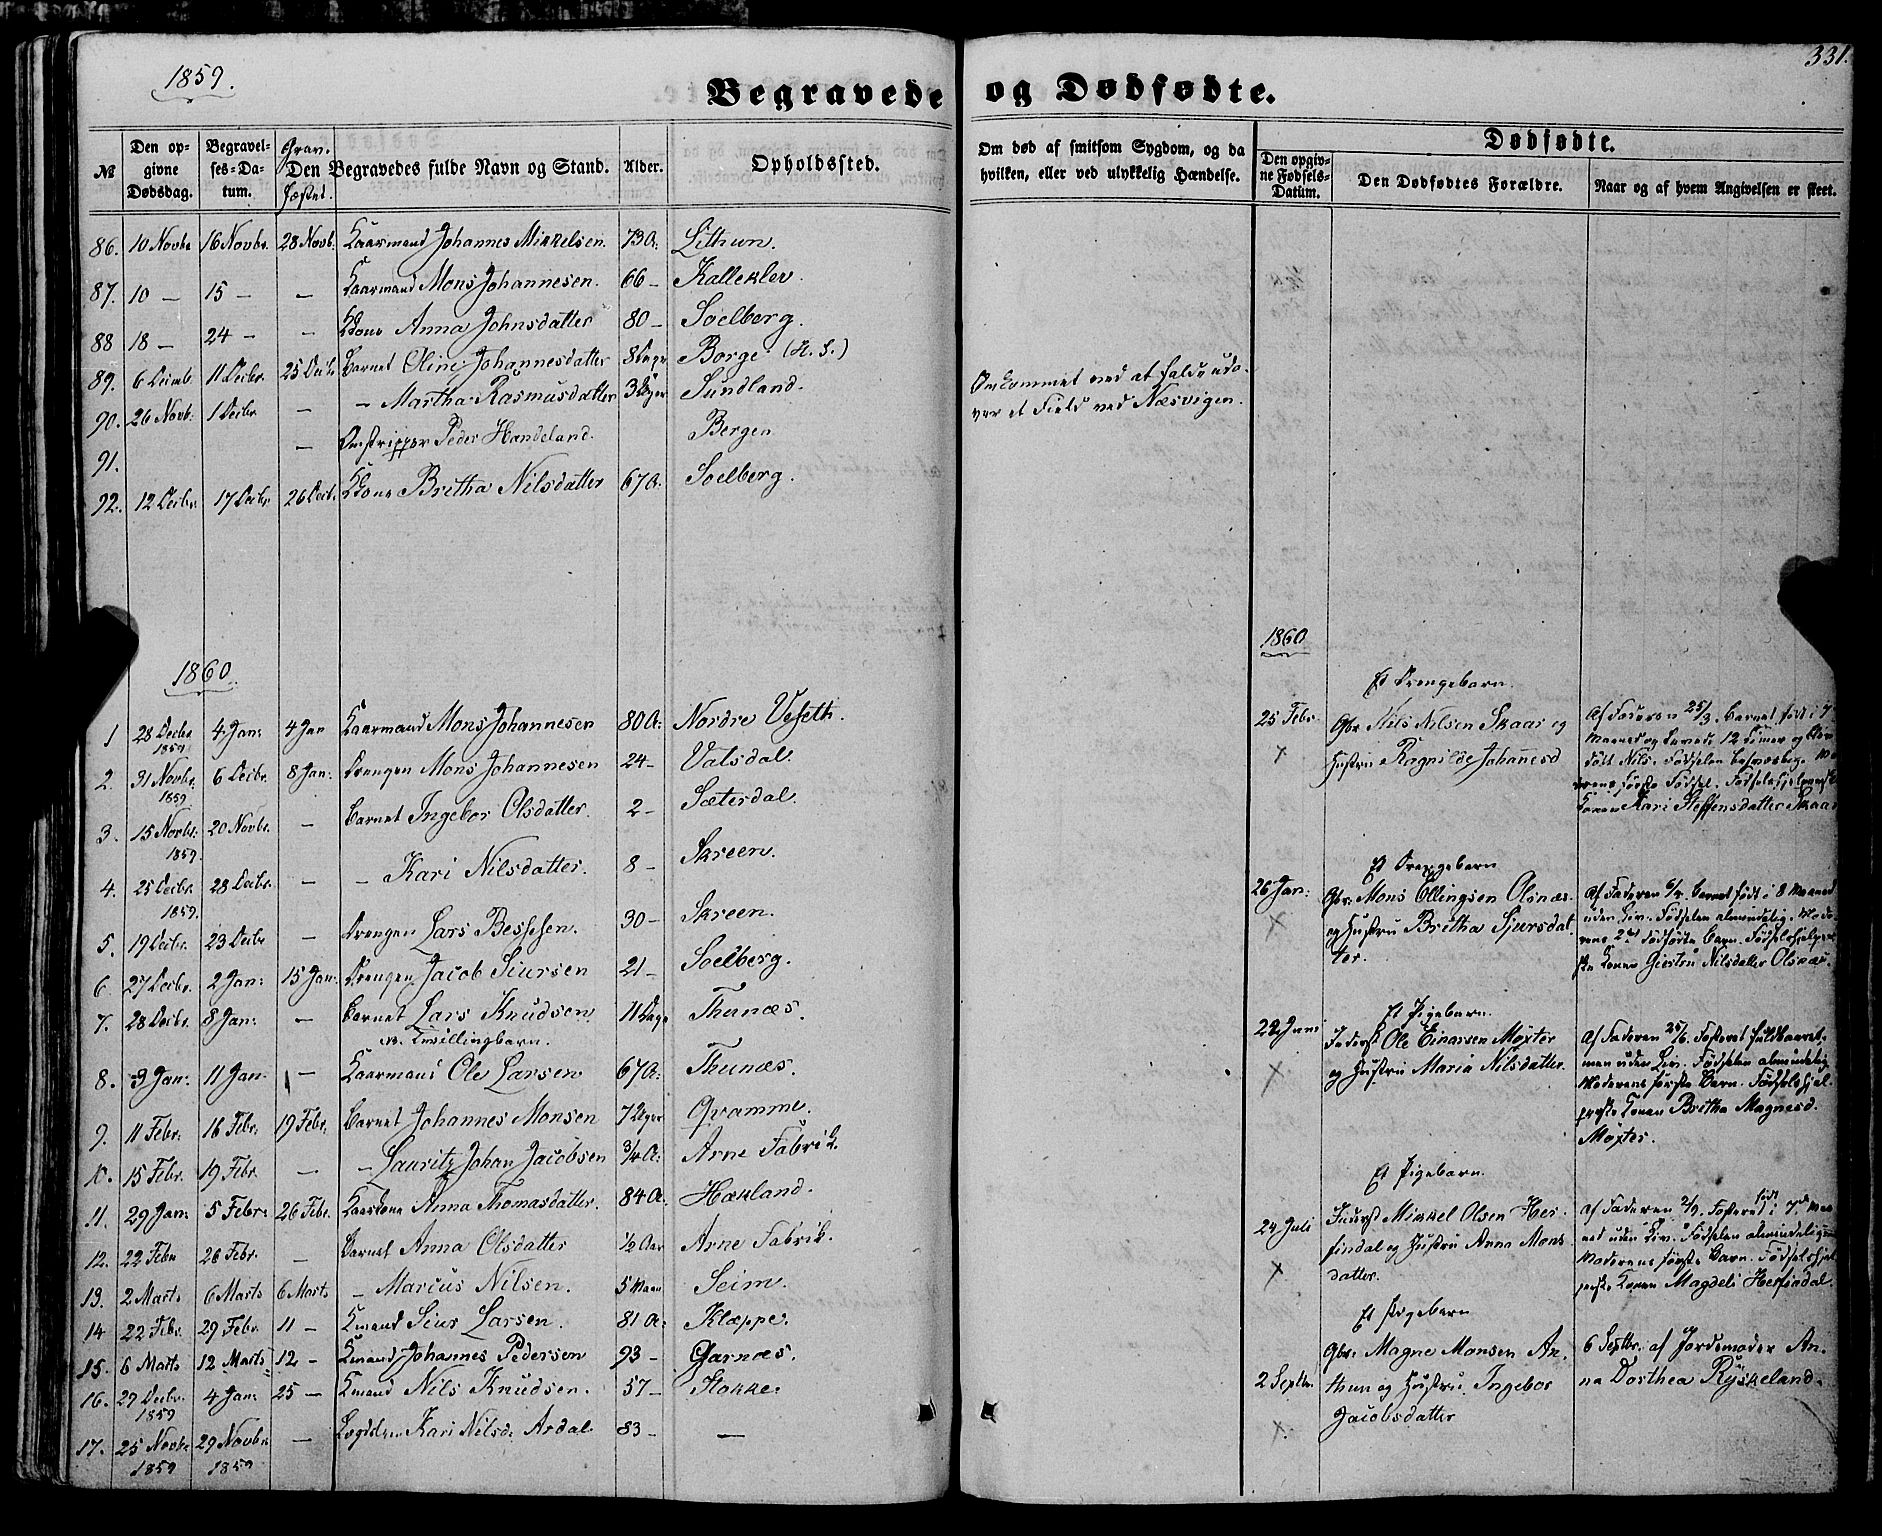 1859.
331.
Begravede og Dødfødte.
№ Den opgivne Dødsdag. Begravelses-Datum. Grav. fæstet. Den Begravedes fulde Navn og Stand. Alder. Opholdssted. Om død af smitsom Sygdom, og da hvilken, eller ved ulykkelig Hændelse.
Dødfødte.
Den opgivne Fødsels-Datum. Den Dødfødtes Forældre. Naar og af hvem Angivelsen er skeet.
86. 10 Novbr 16 Novbr. 28 Novb. Kaarmand Johannes Mikkelsen. 73 A: Lithun.
87. 10 — 15 — — Kaarmand Mons Johannesen. 66 — Kalleklev.
88 18 — 24 — — Kone Anna Johnsdatter 80 — Soelberg.
89. 6 Decemb. 11 Decbr. 25 Decbr Barnet Oline Johannesdatter 8 Dage Borge (H. S.)
90. 26 Novb: 1 Decbr — — Martha Rasmusdatter 3 Uger Sundland.
Omkommet ved at falde udover et Field ved Næsvigen.
91. — Peder Handeland. Bergen
92. 12 Decbr. 17 Decbr. 26 Decbr. Kone Britha Nilsdatter 67 A. Soelberg.
1860
1 28 Decbr 1859 4 Jan: 4 Jan Kaarmand Mons Johannesen 80 A: Nordre Veseth.
2. 31 Novbr. 1859 6 Decbr. 8 Jan: Drengen Mons Johannesen 24 — Valsdal.
3. 15 Novbr: 1859. 20 Novbr. — Barnet Ingebor Olsdatter. 2 — Sæterdal.
4. 25 Decbr. 1859. 28 Decbr. — — Kari Nilsdatter. 8 — Skreen.
5. 19 Decbr. 23 Decbr — Drengen Lars Bessesen. 30 — Skreen.
6. 27 Decbr. 2 Jan: 15 Jan: Drengen Jacob Siursen 21 — Soelberg.
7. 28 Decbr. 8 Jan: — Barnet Lars Knudsen 11 Dage Thunæs.
NB. Tvillingbarn.
8. 3 Jan: 11 Jan. — Kaarmand Ole Larsen 67 A: Thunæs.
9. 11 Febr: 16 Febr: 19 Febr: Barnet Johannes Monsen 7 Uger Qvamme.
10. 15 Febr. 19 Febr. — — Lauritz Johan Jacobsen 3/4 A: Arne Fabrik.
11. 29 Jan: 5 Febr: 26 Febr. Kaarkone Anna Thomasdatter. 84 A. Hækland.
12. 22 Febr 26 Febr. — Barnet Anna Olsdatter 1/2 Aar Arne Fabrik.
13. 2 Marts 6 Marts 6 Marts — Marcus Nilsen. 5 Maan Seim.
14 22 Febr. 29 Febr. 11 — Kmand Siur Larsen. 81 A: Klæppe.
15. 6 Marts 12 Marts 12 — Kmand Johannes Pedersen 93 — Garnæs.
16. 29 Decbr. 1859 4 Jan: 25 — Kmand Nils Knudsen. 57 — Stokke.
17. 25 Novbr 1859 29 Novbr 1859 — Lægdslem Kari Nilsd: Ardal 83 — —
1860
Et Drengebarn.
25 Febr. Gbr. Nils Nilsen Skaar og
Hustru Ragnilde Johannesd
Af Faderen 25/3. Barnet født i 7
Maaned og levede 12 Timer og blev
døbt Nils. Fødselen besværlig. Mo
derens første Fødsel. Fødselshjelperske
Konen Kari Steffensdatter Skaar
Et Drengebarn
26 Jan: Gbr. Mons Ellingsen Olsnæs
og Hustru Britha Sjursdat
ter.
Af Faderen 6/4 Barnet født i 8 Maaned
uden Liv. Fødselen almindelig. Mode
rens 2det dødfødte Barn. Fødselshjelper
ske Konen Giertru Nilsdatter Olsnæs.
Et Pigebarn.
22 Juni Inderst Ole Einarsen Møxter
og Hustru Maria Nilsdatter.
Af Faderen 25/6. Fosteret fuldbaaret.
men uden Liv. Fødselen almindelig
Moderens første Barn. Fødselshjel
perske Konen Britha Magnesd.
Møxter.
Et Pigebarn.
24 Juli Inderst Mikkel Olsen Her
findal og Hustru Anna Mons
datter.
Af Faderen 2/9. Fosteret født i 7de Maa
ned uden Liv. Fødselen almindelig
Moderens første Barn. Fødselshjel
perske Konen Magdeli Herfindal.
Et Pigebarn
2 Septbr. Gbr: Magne Monsen An
thun og Hustru Ingebor
Jacobsdatter
6 Septbr. af Jordemoder An
na Dorthea Ryskeland.